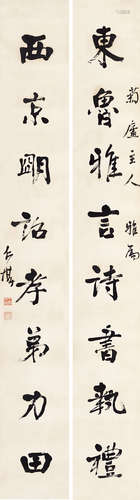 東魯雅言詩書執禮
菊廬主人雅屬
西京明詔孝弟力田